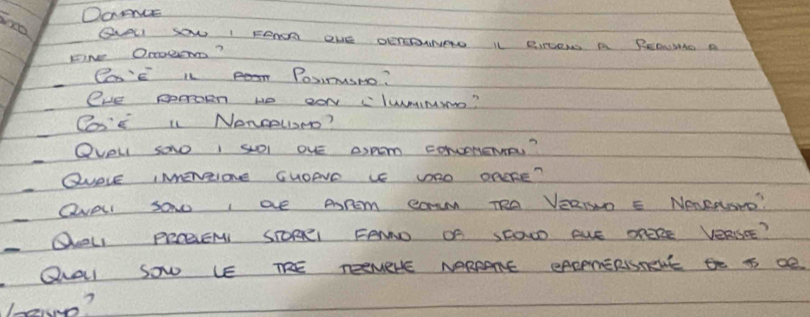 DOMANDE
QUALI SONO I FENOM CHE DETERMINANO IL RITORNO A REALISMO A
FINE OTTOCENTO?
- COS'È IL POSITIVISMO?
- CHE RAPPORTI HA CON L'ILLUMINISMO?
- COS'È IL NATURALISMO?
- QUALI SONO I SUOI DUE ASPETTI FONDAMENTALI?
- QUALE INTENZIONE GUIDAVA LE LORO OPERE?
- QUALI SONO I DUE ASPETTI COMUNI TRA VERISMO E NATURALISMO?
- QUALI PROBLEMI STORICI FANNO DA SFONDO ALLE OPERE VERISTE?
- QUALI SONO LE TRE TECNICHE NARRATIVE CARATTERISTICHE DEL
VERISMO?